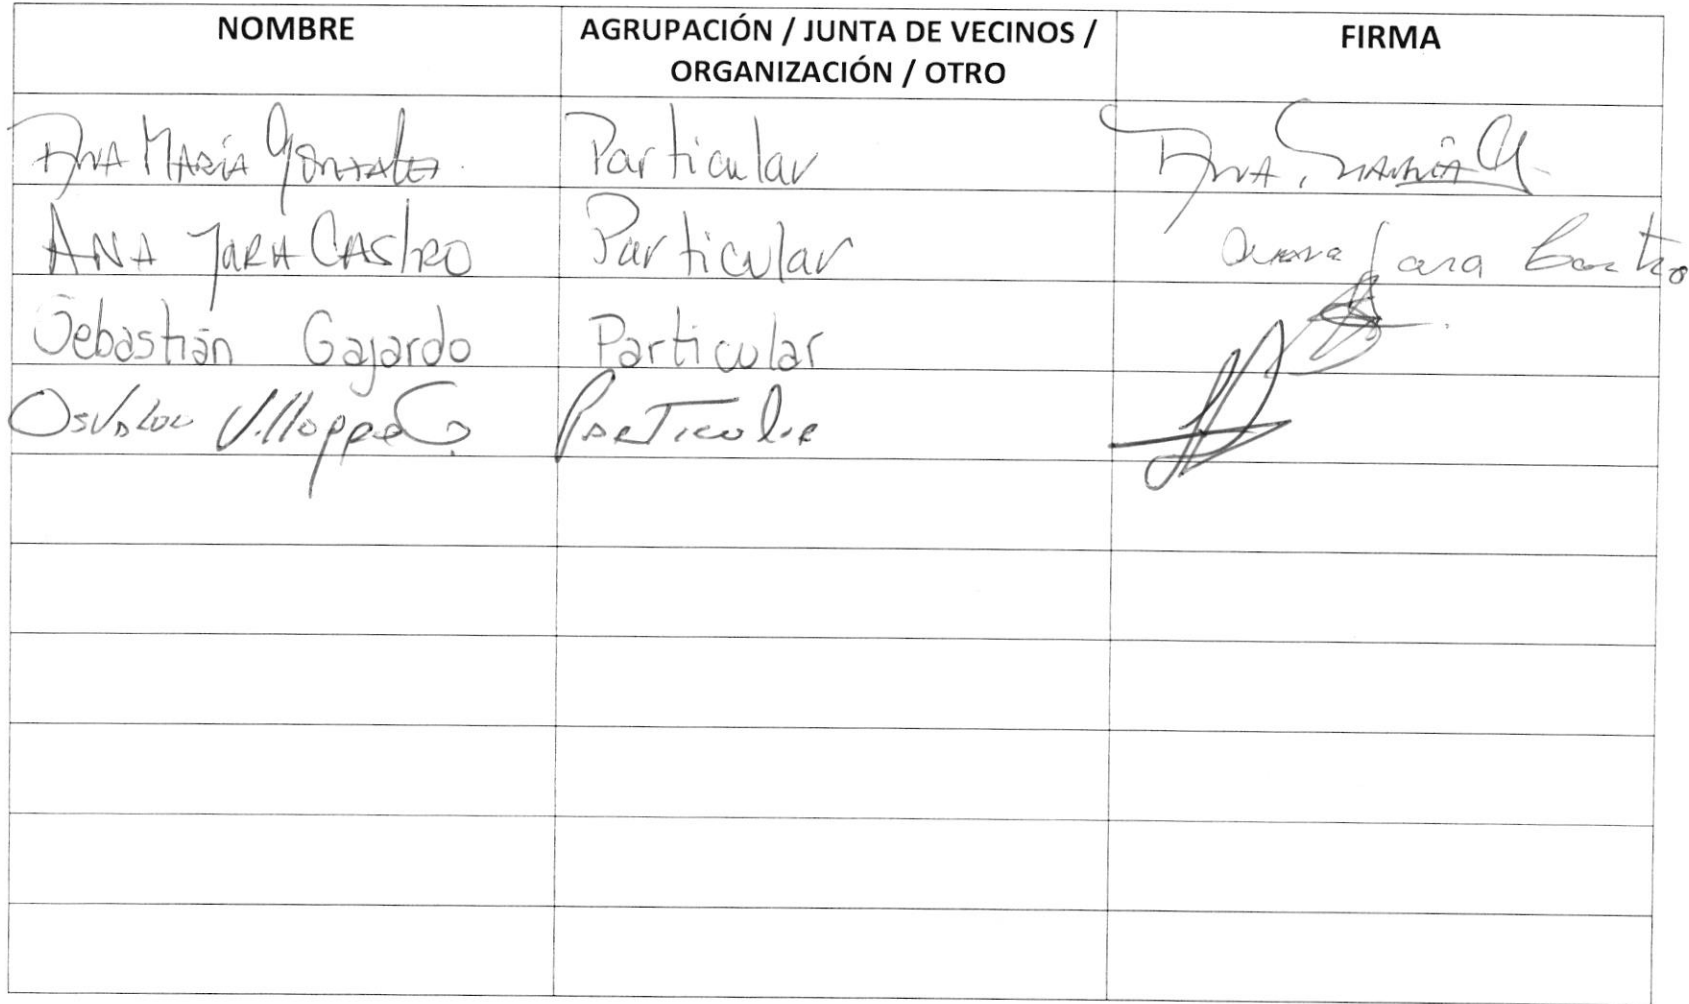 NOMBRE
AGRUPACIÓN / JUNTA DE VECINOS /
ORGANIZACIÓN / OTRO
FIRMA
Ana María González Particular Ana María G
ANA JARA CASTRO Particular Jara Castro
Sebastián Gajardo Particular
Particular